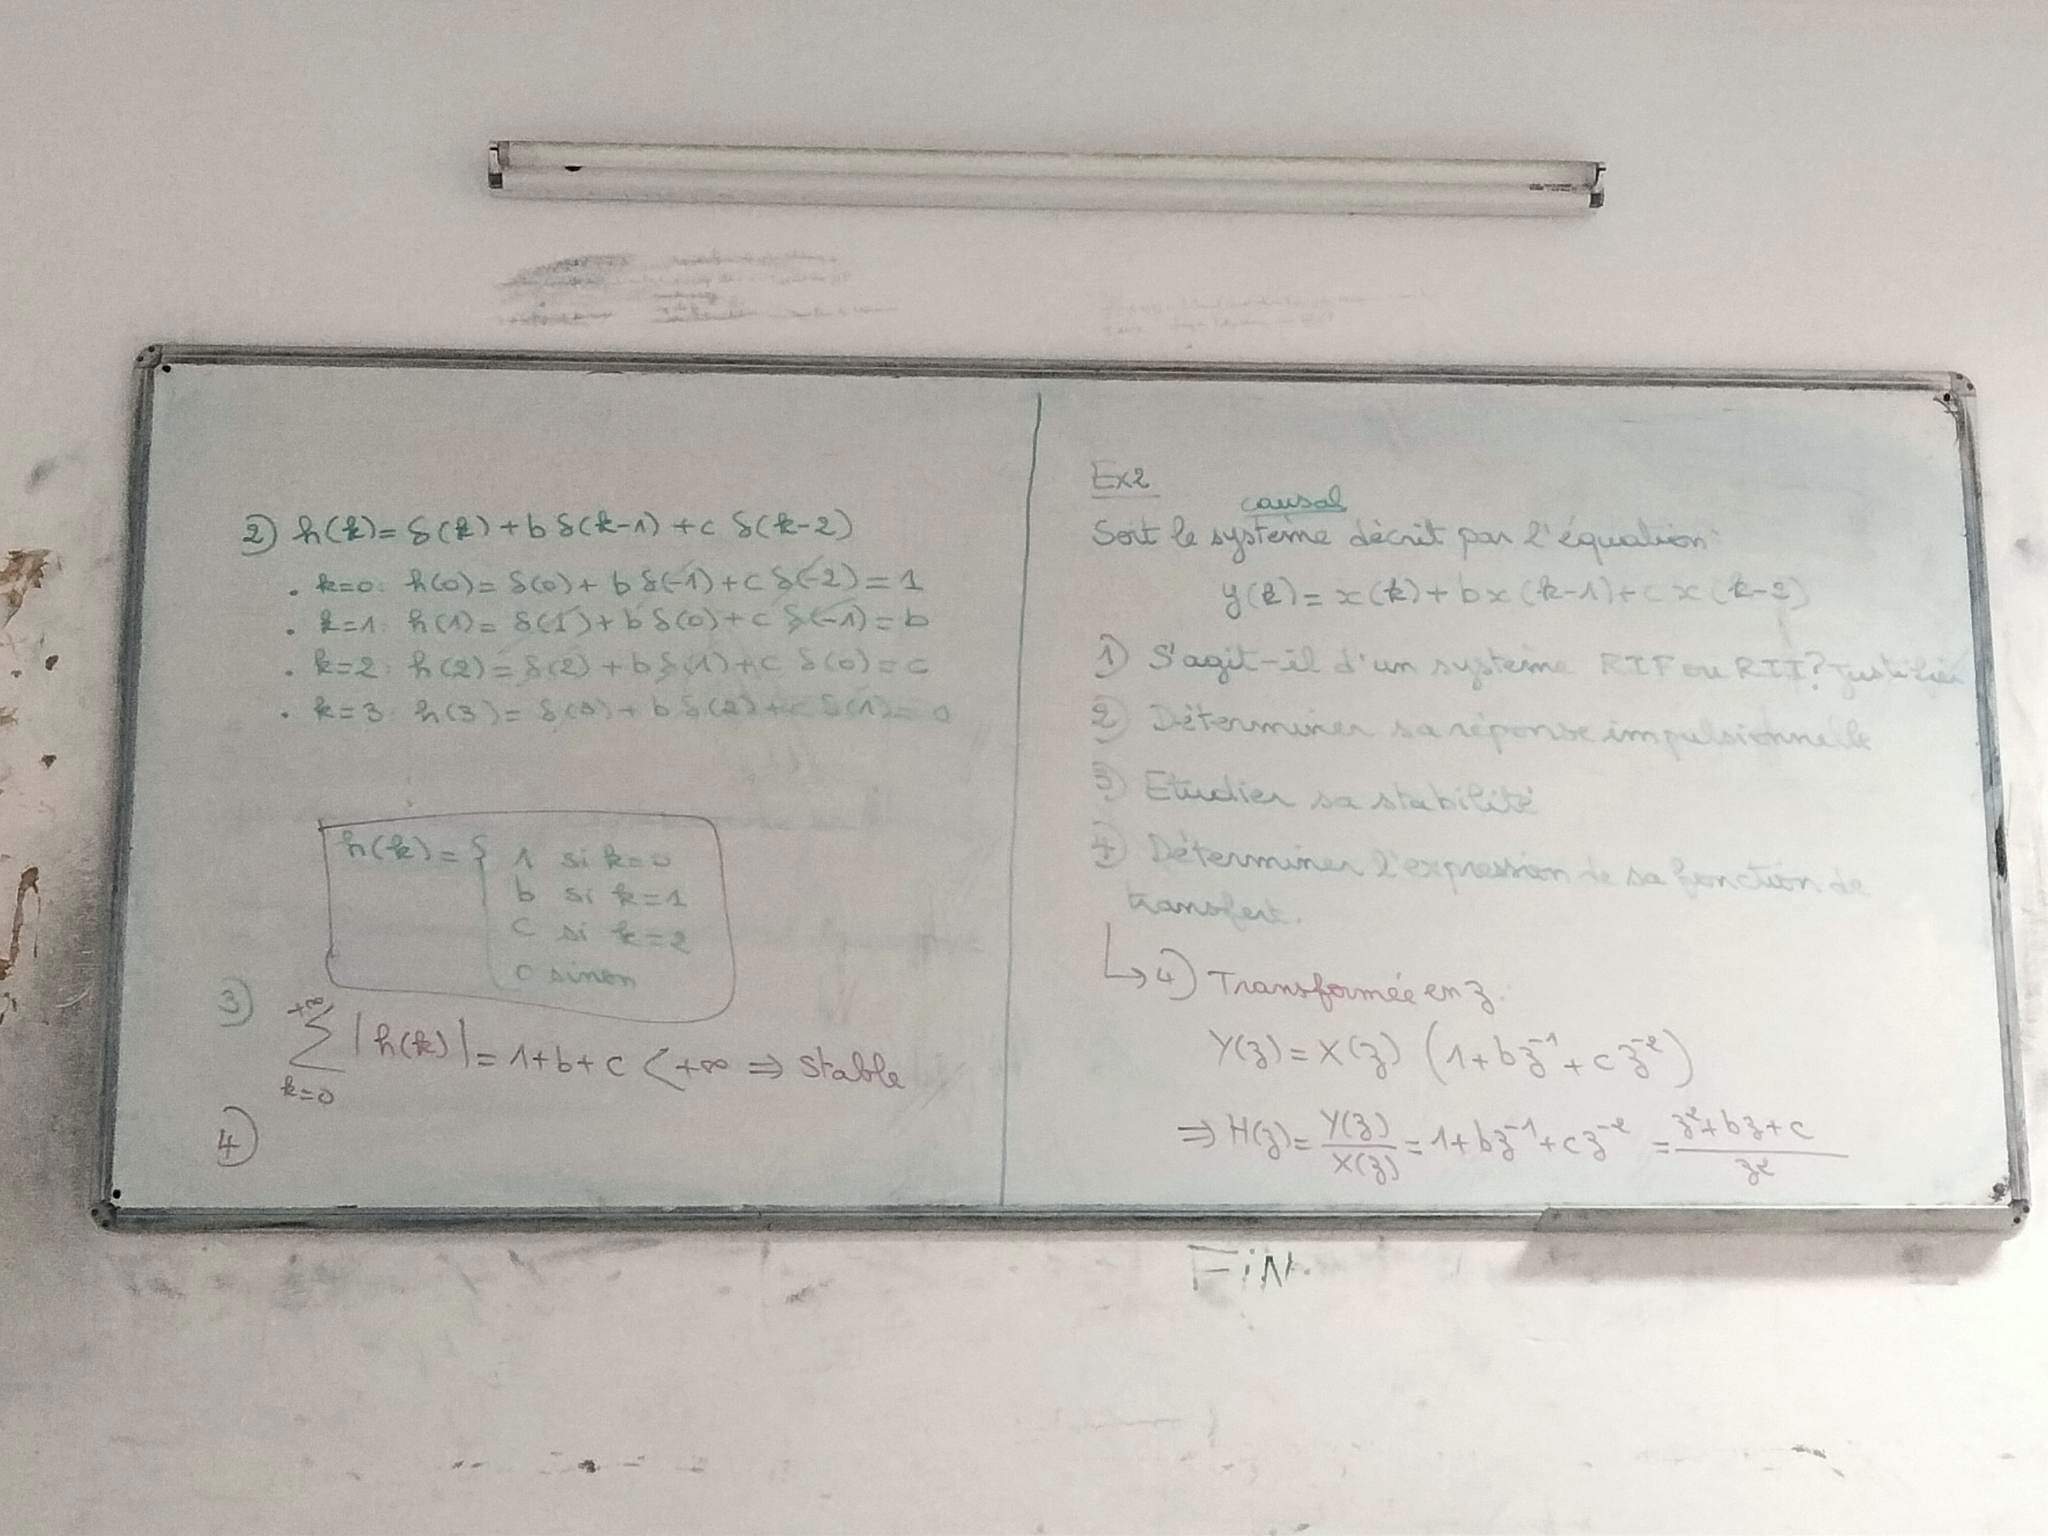 2) h(k) = δ(k) + b δ(k-1) + c δ(k-2)
. k=0: h(0) = δ(0) + b δ(-1) + c δ(-2) = 1
. k=1: h(1) = δ(1) + b δ(0) + c δ(-1) = b
. k=2: h(2) = δ(2) + b δ(1) + c δ(0) = c
. k=3: h(3) = δ(3) + b δ(2) + c δ(1) = 0
h(k) = { 1 si k=0
b si k=1
c si k=2
0 sinon
3) +∞ ∑ k=0 |h(k)| = 1+b+c < +∞ ⇒ stable
4)
Ex2
causal
Soit le système décrit par l'équation:
y(k) = x(k) + b x(k-1) + c x(k-2)
1) S'agit-il d'un système RIF ou RII? Justifier
2) Déterminer sa réponse impulsionnelle
3) Etudier sa stabilité
4) Déterminer l'expression de sa fonction de
transfert.
↳ 4) Transformée en z.
Y(z) = X(z) (1 + b z⁻¹ + c z⁻²)
⇒ H(z) = Y(z)/X(z) = 1 + b z⁻¹ + c z⁻² = (z² + bz + c)/z²
FiN.